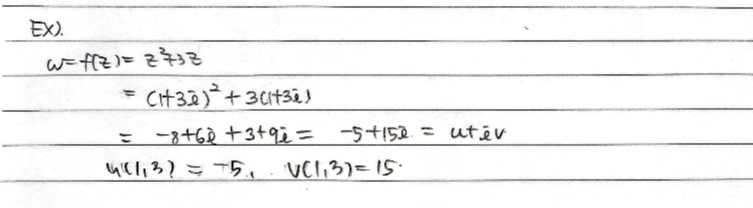 EX).
w=f(z)= z²+3z
= (1+3i)² + 3(1+3i)
= -8+6i +3+9i = -5+15i = u+iv
u(1,3) = -5, v(1,3)=15.